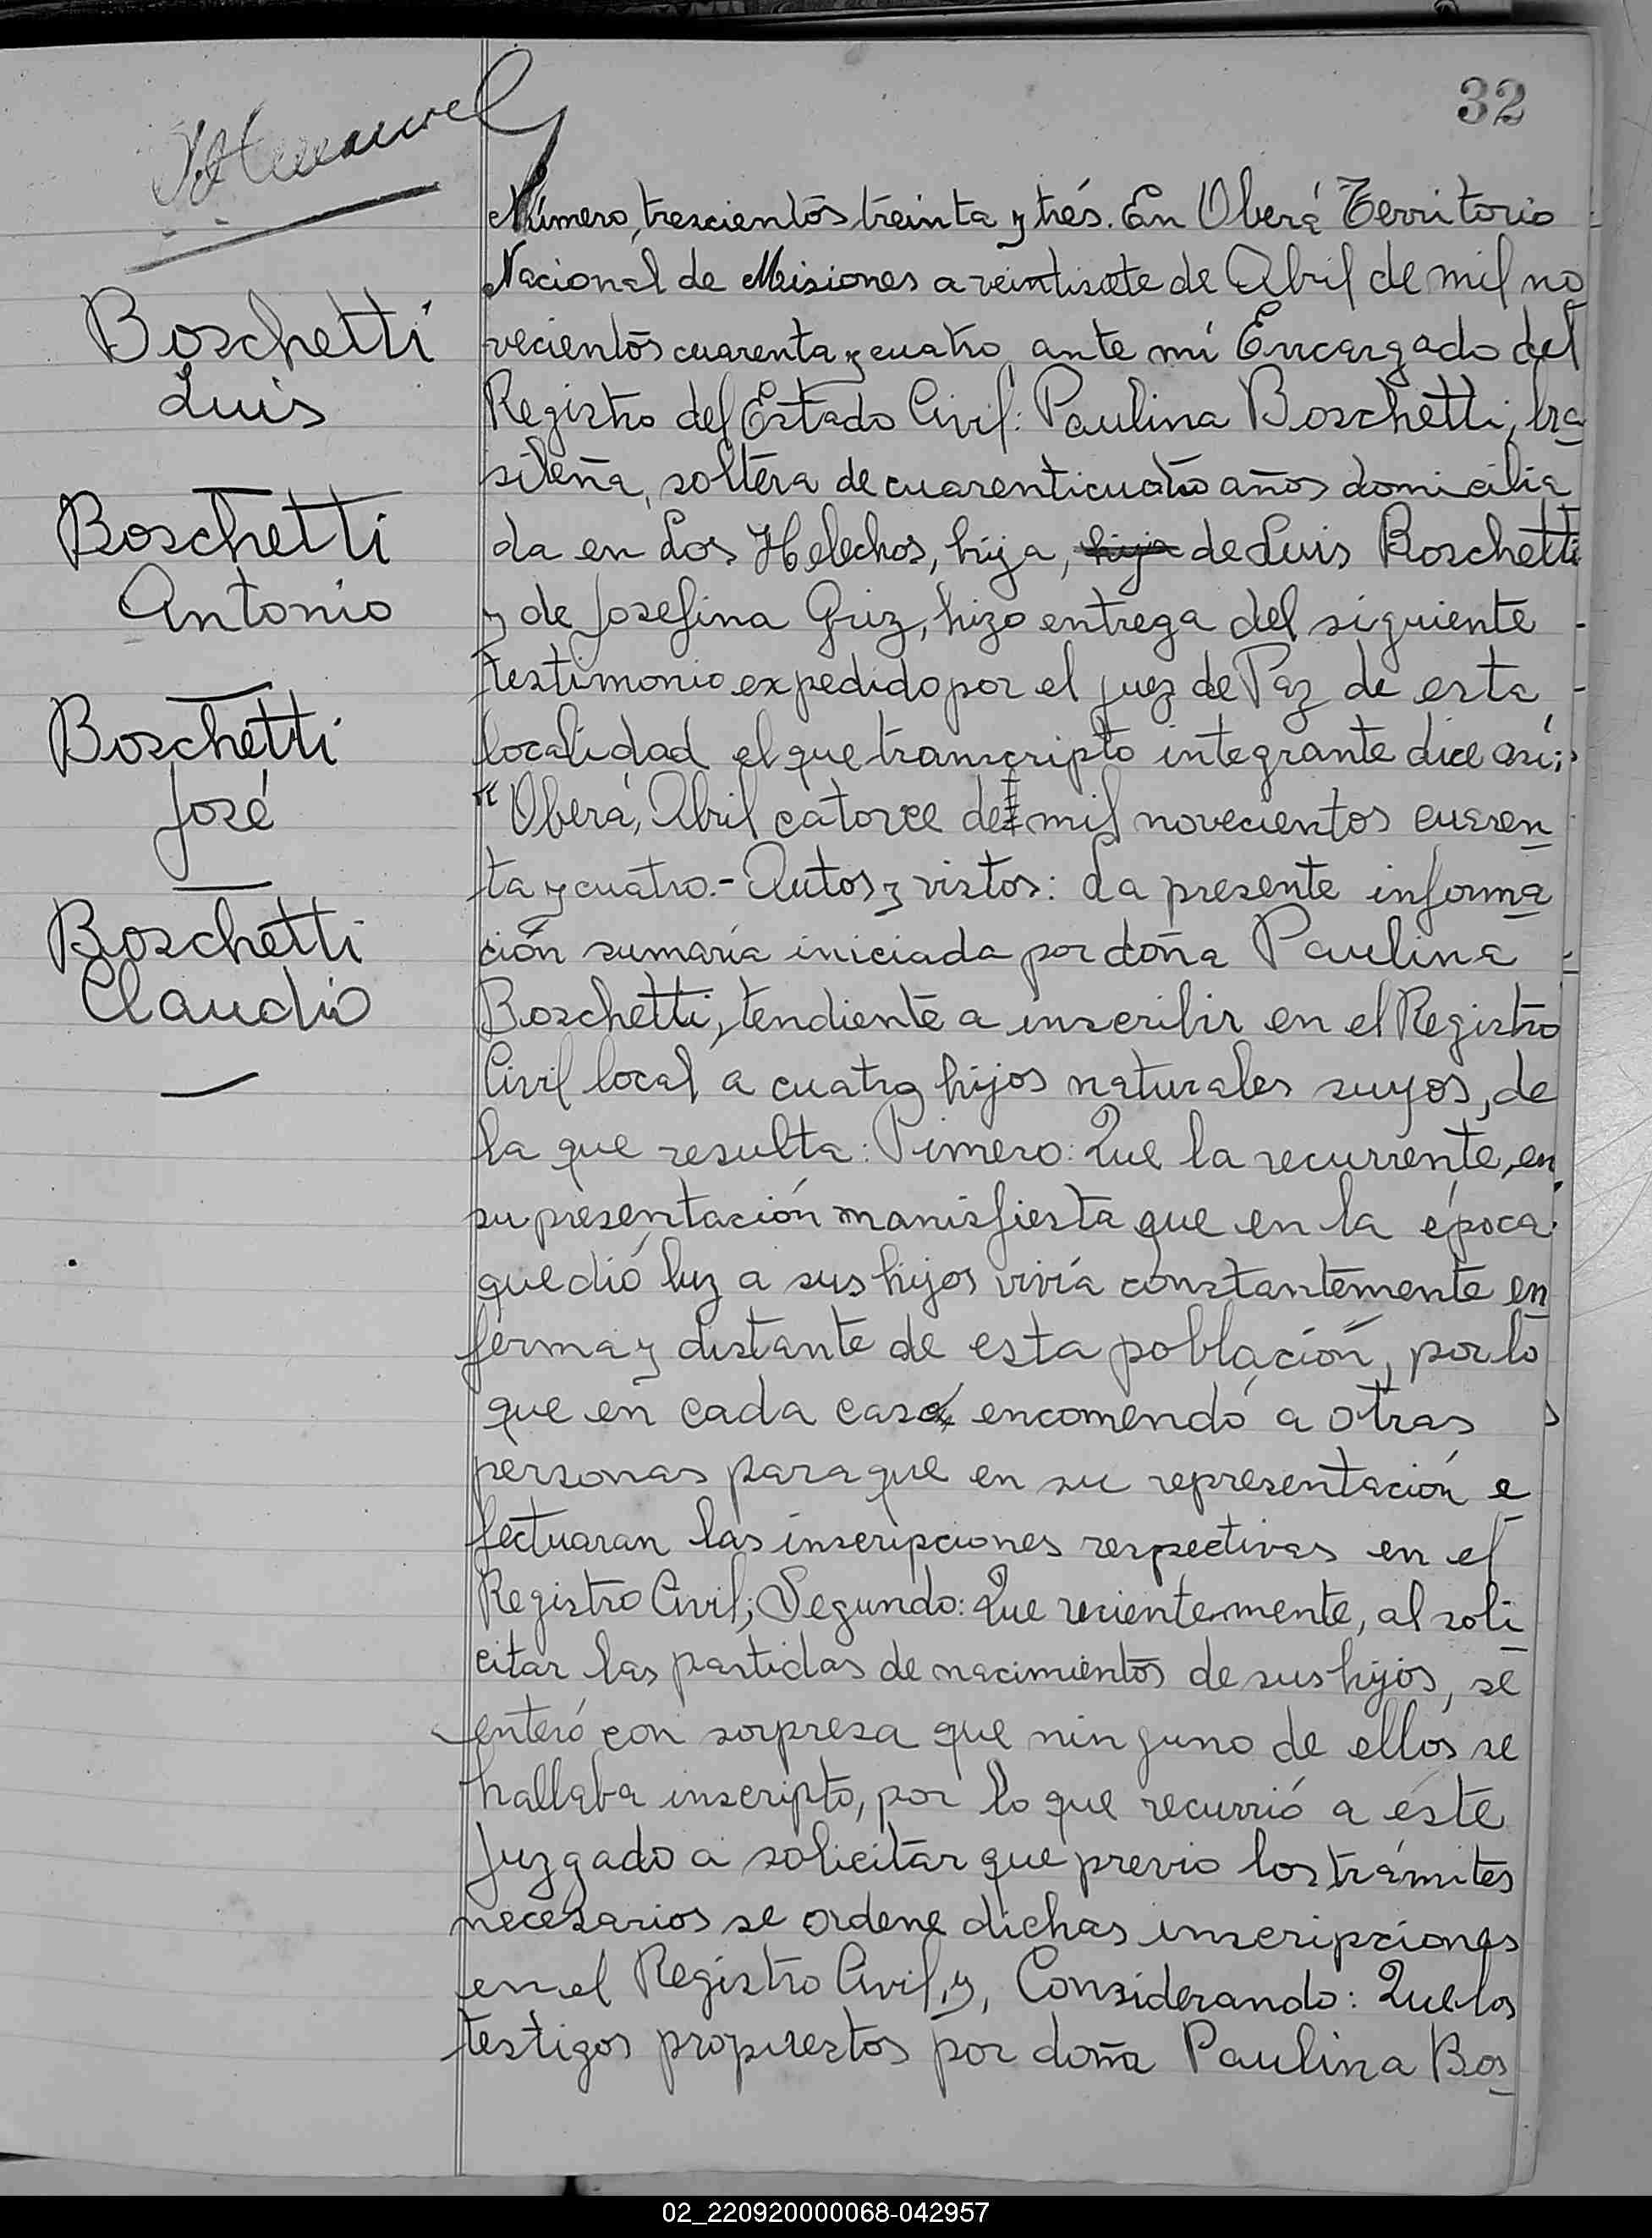 32
Boschetti
Luis
Boschetti
Antonio
Boschetti
José
Boschetti
Claudio
Número, trescientos treinta y trés. En Oberá Territorio
Nacional de Misiones a veintisiete de Abril de mil no
vecientos cuarenta y cuatro ante mí Encargado del
Registro del Estado Civil: Paulina Boschetti, bra
sileña, soltera de cuarenticuatro años domicilia
da en Los Helechos, hija, hija de Luis Boschetti
y de Josefina Griz, hizo entrega del siguiente
testimonio expedido por el juez de Paz de esta
localidad el que transcripto integrante dice así:
"Oberá, Abril catorce de mil novecientos cuaren
ta y cuatro.- Autos y vistos: La presente informa
ción sumaria iniciada por doña Paulina
Boschetti, tendiente a inscribir en el Registro
Civil local a cuatro hijos naturales suyos, de
la que resulta: Pimero: Que la recurrente, en
su presentación manisfiesta que en la época
que dió luz a sus hijos vivía constantemente en
ferma y distante de esta población, por lo
que en cada caso encomendó a otras
personas para que en su representación e
fectuaran las inscripciones respectivas en el
Registro Civil; Segundo: Que recientemente, al soli
citar las partidas de nacimientos de sus hijos, se
enteró con sorpresa que ninguno de ellos se
hallaba inscripto, por lo que recurrió a éste
Juzgado a solicitar que previo los trámites
necesarios se ordene dichas inscripciones
en el Registro Civil, y, Considerando: Que los
testigos propuestos por doña Paulina Bos
02_220920000068-042957